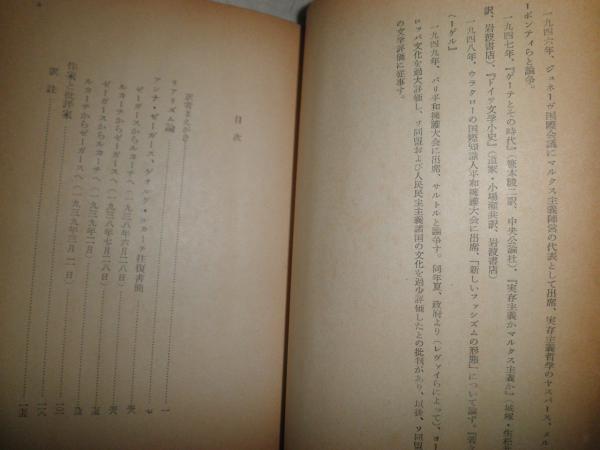 一九四六年、ジュネーヴ国際会議にマルクス主義陣営の代表として出席、実存主義哲学のヤスパース、メル
ーポンティらと論争。
一九四七年、『ゲーテとその時代』(菊本
訳、中央公論社)、『実存主義かマルクス主義か』(城塚・生松
訳、岩波書店)、『ドイツ文学小史』(道家・小場瀬共訳、岩波書店)
一九四八年、ウラクローの国際知識人平和擁護大会に出席、「新しいファシズムの形態」について論ず。『若き
ヘーゲル』
一九四九年、パリ平和擁護大会に出席、サルトルと論争す。同年夏、政府より(レヴァイらによって)、ヨー
ロッパ文化を過大評価し、ソ同盟および人民民主主義諸国の文化を過少評価したとの批判があり、以後、ソ同盟
の文学評価に従事す。
目次
訳者まえがき 一
リアリズム論 七
アンナ・ゼーガース、ゲオルグ・ルカーチ往復書簡
ゼーガースからルカーチへ(一九三八年六月二八日)
ルカーチからゼーガースへ(一九三八年七月二八日)
ゼーガースからルカーチへ(一九三九年二月)
ルカーチからゼーガースへ(一九三九年三月二日)
作家と批評家
訳註